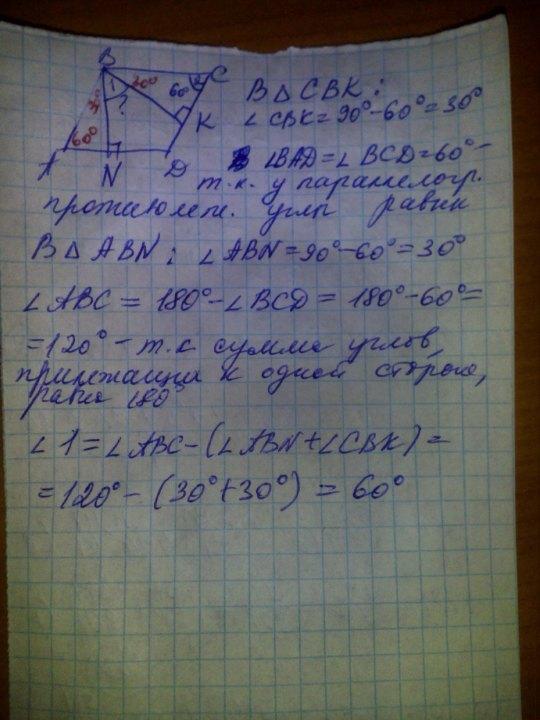 B
C
1
30°
60°
2
30°
?
60°
K
A
N
D
В △ CBK:
∠ CBK = 90° - 60° = 30°
∠BAD = ∠ BCD = 60° -
т.к. у параллелогр.
противолеж. углы равны
В △ ABN: ∠ ABN = 90° - 60° = 30°
∠ ABC = 180° - ∠ BCD = 180° - 60° =
= 120° - т.к сумма углов,
прилежащих к одной стороне,
равна 180°
∠ 1 = ∠ ABC - (∠ ABN + ∠ CBK) =
= 120° - (30° + 30°) = 60°